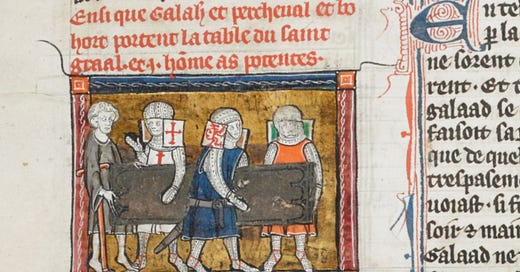 Ensi que Galah et percheual et bo
hort portent la table du saint
graal. et .j. home as potentes.
ne sorent
rent. Et
galaad se
faisoit sa
que de que
trespasem
uoiast. si f
soir & main
Galaad ne